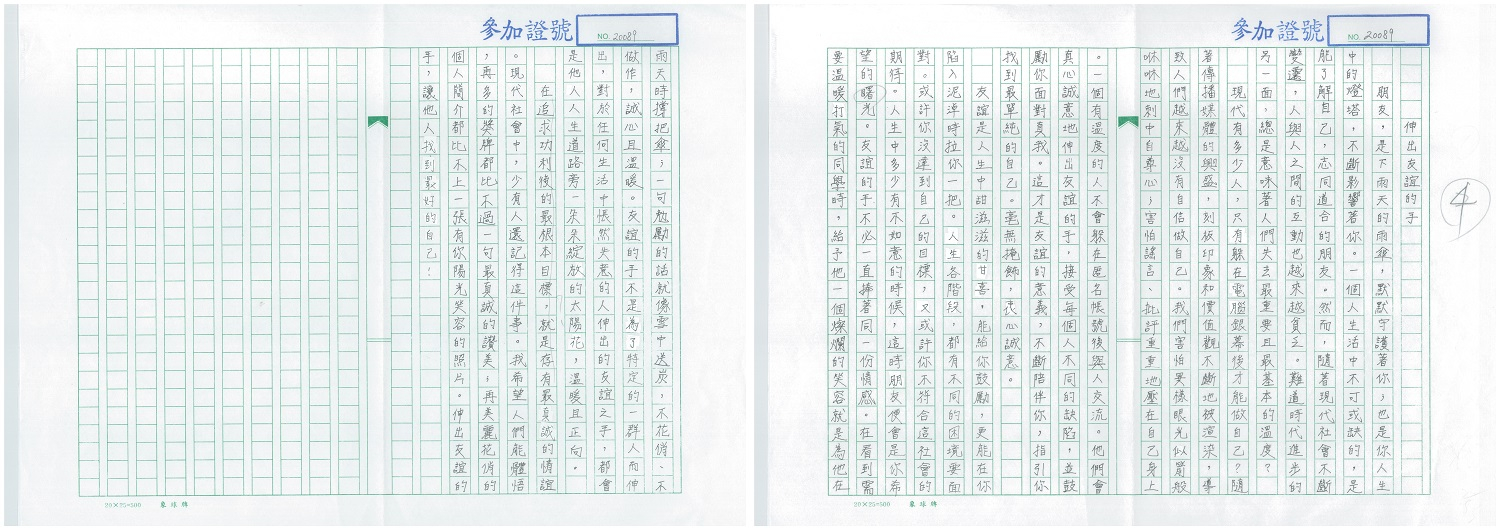 參加證號
NO. 20089
4
伸出友誼的手
朋友，是下雨天的雨傘，默默守護著你，也是你人生
中的燈塔，不斷影響著你。一個人生活中不可或缺的，是
能了解自己，志同道合的朋友。然而，隨著現代社會不斷
變遷，人與人之間的互動也越來越貧乏。難道時代進步的
另一面，總是意味著人們失去最重要且最基本的溫度？
現代有多少人，只有躲在電腦銀幕後才能做自己？隨
著傳播媒體的興盛，刻板印象和價值觀不斷地被渲染，導
致人們越來越沒有自信做自己。我們害怕異樣眼光似箭般
咻咻地刺中自尊心；害怕謠言、批評重重地壓在自己身上
。一個有溫度的人不會躲在匿名帳號後與人交流。他們會
真心誠意地伸出友誼的手，接受每個人不同的缺陷，並鼓
勵你面對真我。這才是友誼的意義，不斷陪伴你，指引你
找到最單純的自己。毫無掩飾，衷心誠意。
友誼是人生中甜滋滋的甘喜，能給你鼓勵，更能在你
陷入泥淖時拉你一把。人生各階段，都有不同的困境要面
對。或許你沒達到自己的目標，又或許你不符合這社會的
期待。人生中多少有不如意的時候，這時朋友便會是你希
望的曙光。友誼的手不必一直捧著同一份情感。在看到需
要溫暖打氣的同學時，給予他一個燦爛的笑容就是為他在
參加證號
NO. 20089
雨天時撐把傘；一句勉勵的話就像雪中送炭，不花俏、不
做作，誠心且溫暖。友誼的手不是為了特定的一群人而伸
出，對於任何生活中悵然失意的人伸出的友誼之手，都會
是他人人生道路旁一朵朵綻放的太陽花，溫暖且正向。
在追求功利後的最根本目標，就是存有最真誠的情誼
。現代社會中，少有人還記得這件事。我希望人們能體悟
，再多的獎牌都比不過一句最真誠的讚美；再美麗花俏的
個人簡介都比不上一張有你陽光笑容的照片。伸出友誼的
手，讓他人找到最好的自己！
20×25=500 象球牌
20×25=500 象球牌